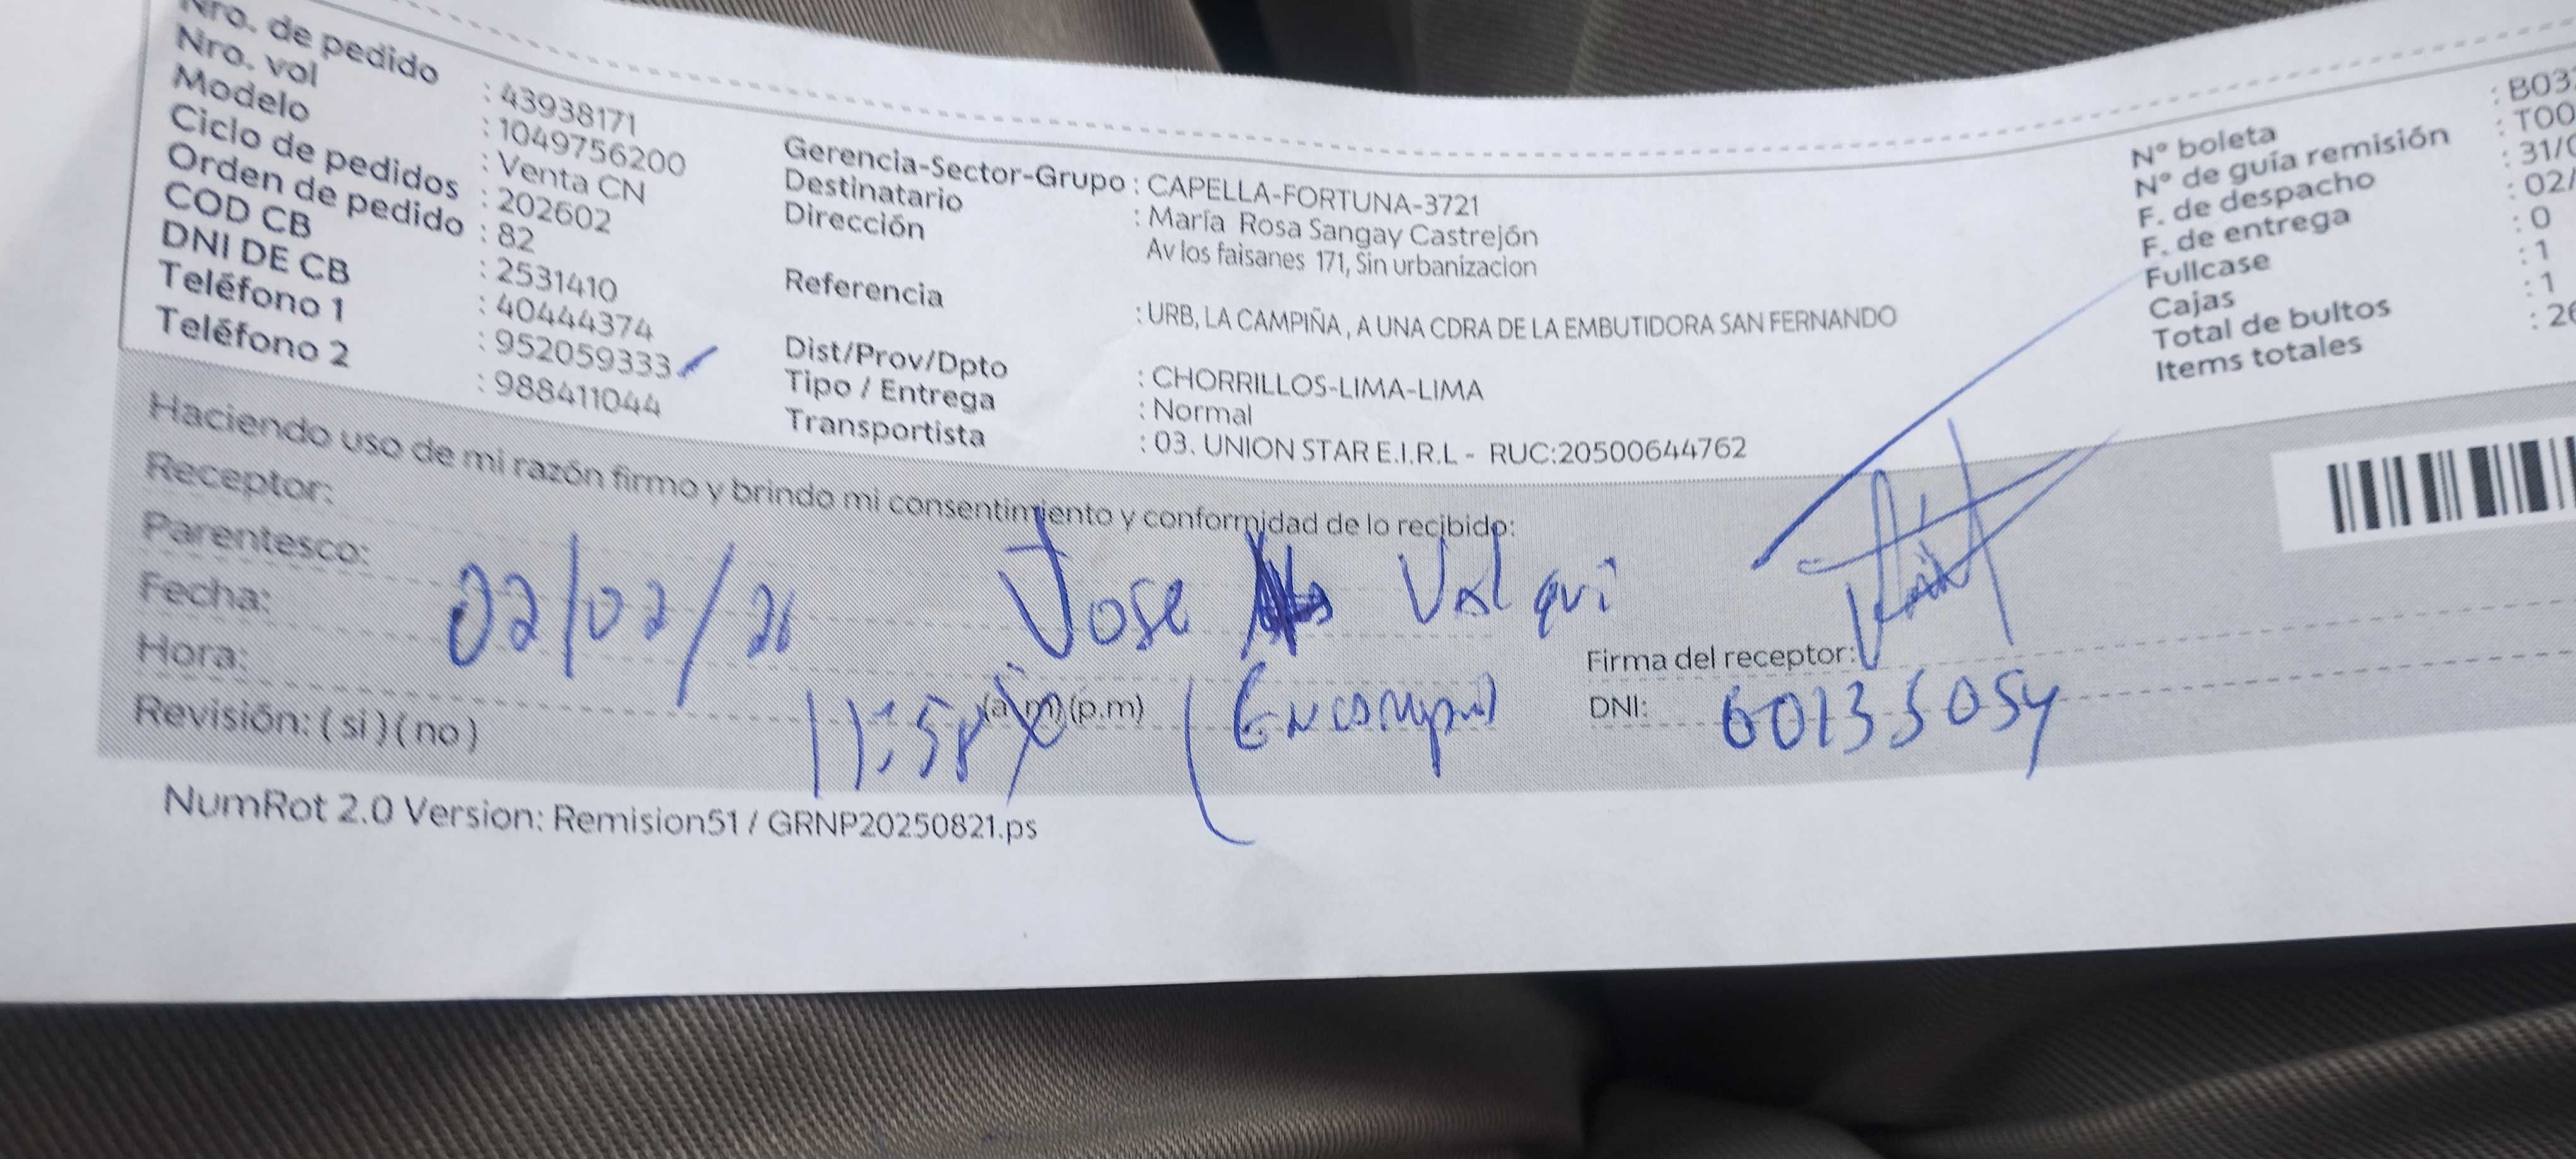 Nro. de pedido : 43938171
Nro. vol : 1049756200
Modelo : Venta CN
Ciclo de pedidos : 202602
Orden de pedido : 82
COD CB : 2531410
DNI DE CB : 40444374
Teléfono 1 : 952059333
Teléfono 2 : 988411044
Gerencia-Sector-Grupo : CAPELLA-FORTUNA-3721
Destinatario : María Rosa Sangay Castrejón
Dirección Av los faisanes 171, Sin urbanizacion
Referencia : URB, LA CAMPIÑA , A UNA CDRA DE LA EMBUTIDORA SAN FERNANDO
Dist/Prov/Dpto : CHORRILLOS-LIMA-LIMA
Tipo / Entrega : Normal
Transportista : 03. UNION STAR E.I.R.L - RUC:20500644762
N° boleta : B03
N° de guía remisión : T00
F. de despacho : 31/0
F. de entrega : 02/
Fullcase : 0
Cajas : 1
Total de bultos : 1
Items totales : 26
Haciendo uso de mi razón firmo y brindo mi consentimiento y conformidad de lo recibido:
Receptor: Jose Valqui
Parentesco:
Fecha: 02/02/26
Hora: (a.m)(p.m)
Revisión: ( si ) ( no )
Firma del receptor:
DNI: 60135054
NumRot 2.0 Version: Remision51 / GRNP20250821.ps